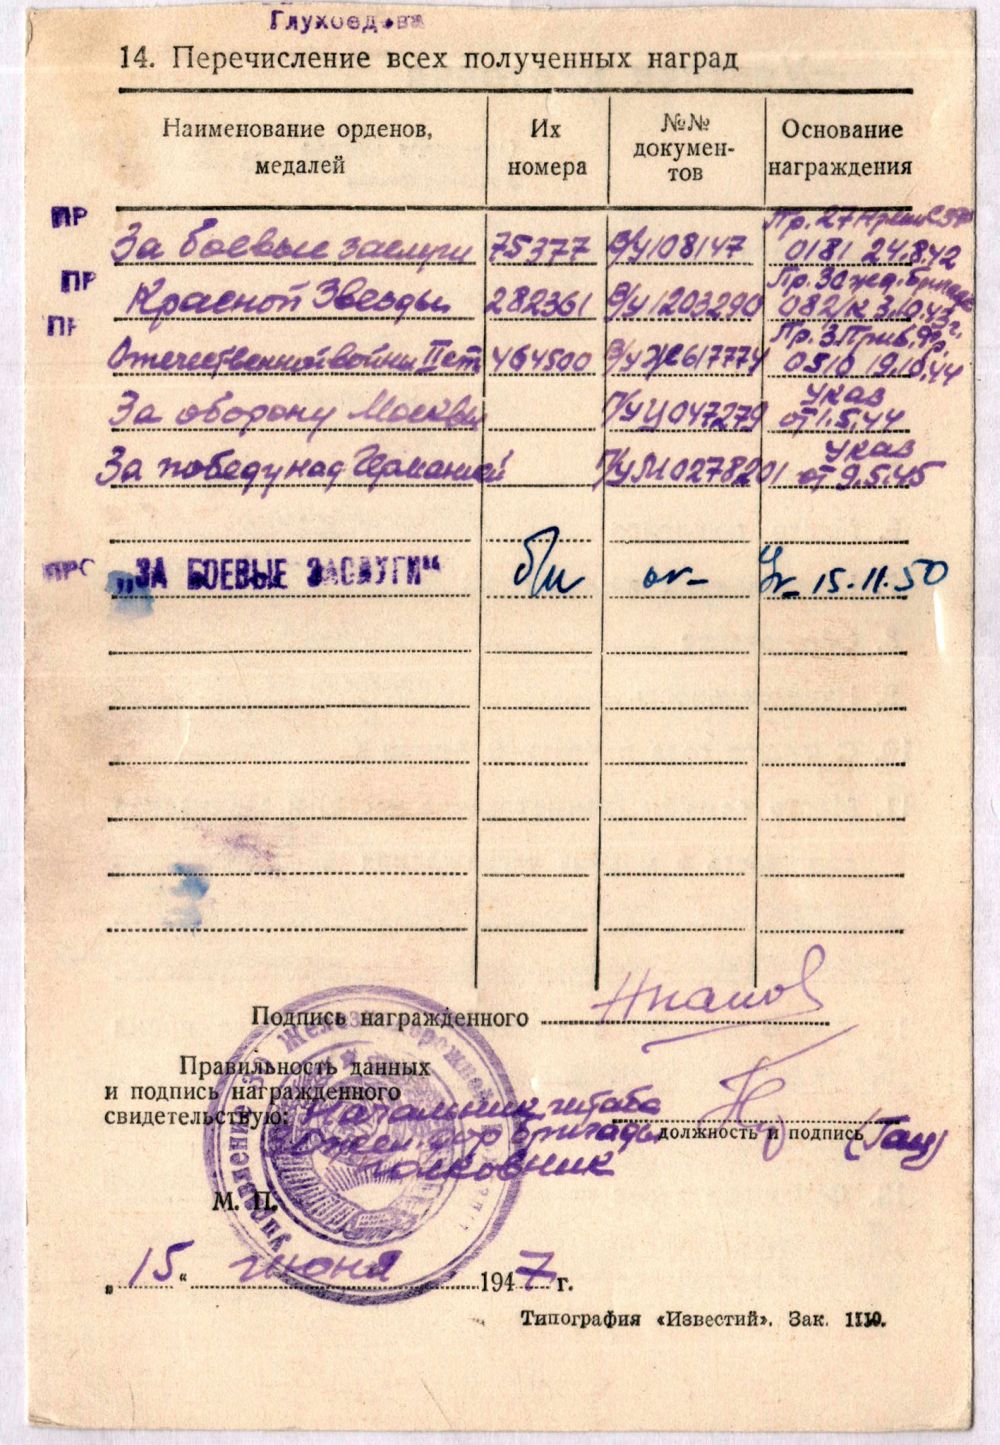 Глухоедова
14. Перечисление всех полученных наград
Наименование орденов, медалей
Их номера
№№ докумен-тов
Основание награждения
ПР
За боевые заслуги 75377 В/У 108147 Пр. 27 0181 24.8.42
ПР
Красной Звезды 282361 В/У 1203290 Пр. 30 жед. бригады 082/к 3.10.43 г.
ПР
Отечественной войны II ст 464500 В/у Ж 617774 Пр. 3 Приб. фр. 0510 19.10.44
За оборону Москвы П/у Ц047279 Указ от 1.5.44
За победу над Германией П/у М0278201 указ от 9.5.45
ПРС
„ЗА БОЕВЫЕ ЗАСЛУГИ“ б/н 15.11.50
Подпись награжденного
Правильность данных
и подпись награжденного
свидетельствую: Начальник штаба
бригады должность и подпись (Гац)
полковник
Управление 30 Железнодорожной
М. П.
„ 15 “ июня 1947 г.
Типография «Известий». Зак. 1110.